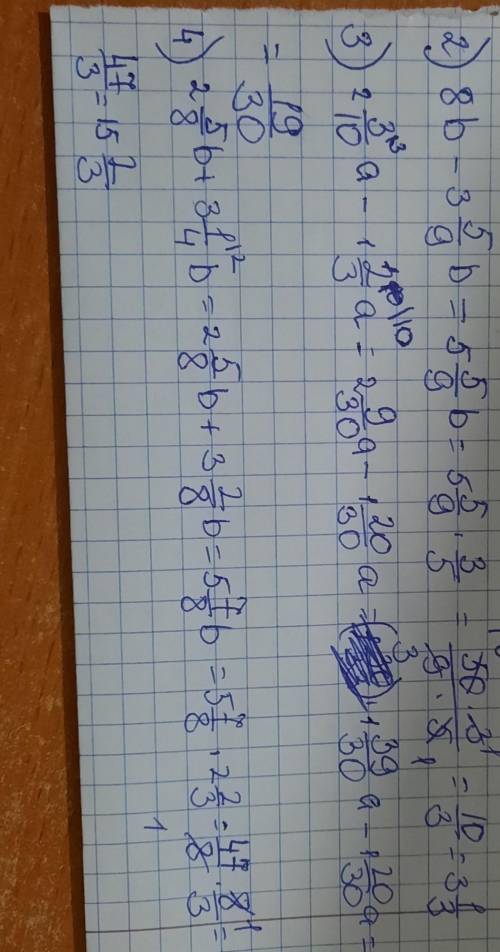 2) 8b - 3 5/9 b = 5 5/9 b = 5 5/9 · 3/5 = 50 · 3 / 9 · 5 = 10/3 = 3 1/3
3) 2 3/10 a - 1 2/3 a = 2 9/30 a - 1 20/30 a = 1 39/30 a - 1 20/30 a =
= 19/30
4) 2 5/8 b + 3 1/4 b = 2 5/8 b + 3 2/8 b = 5 7/8 b = 5 7/8 · 2 2/3 = 47/8 · 8/3 =
47/3 = 15 2/3